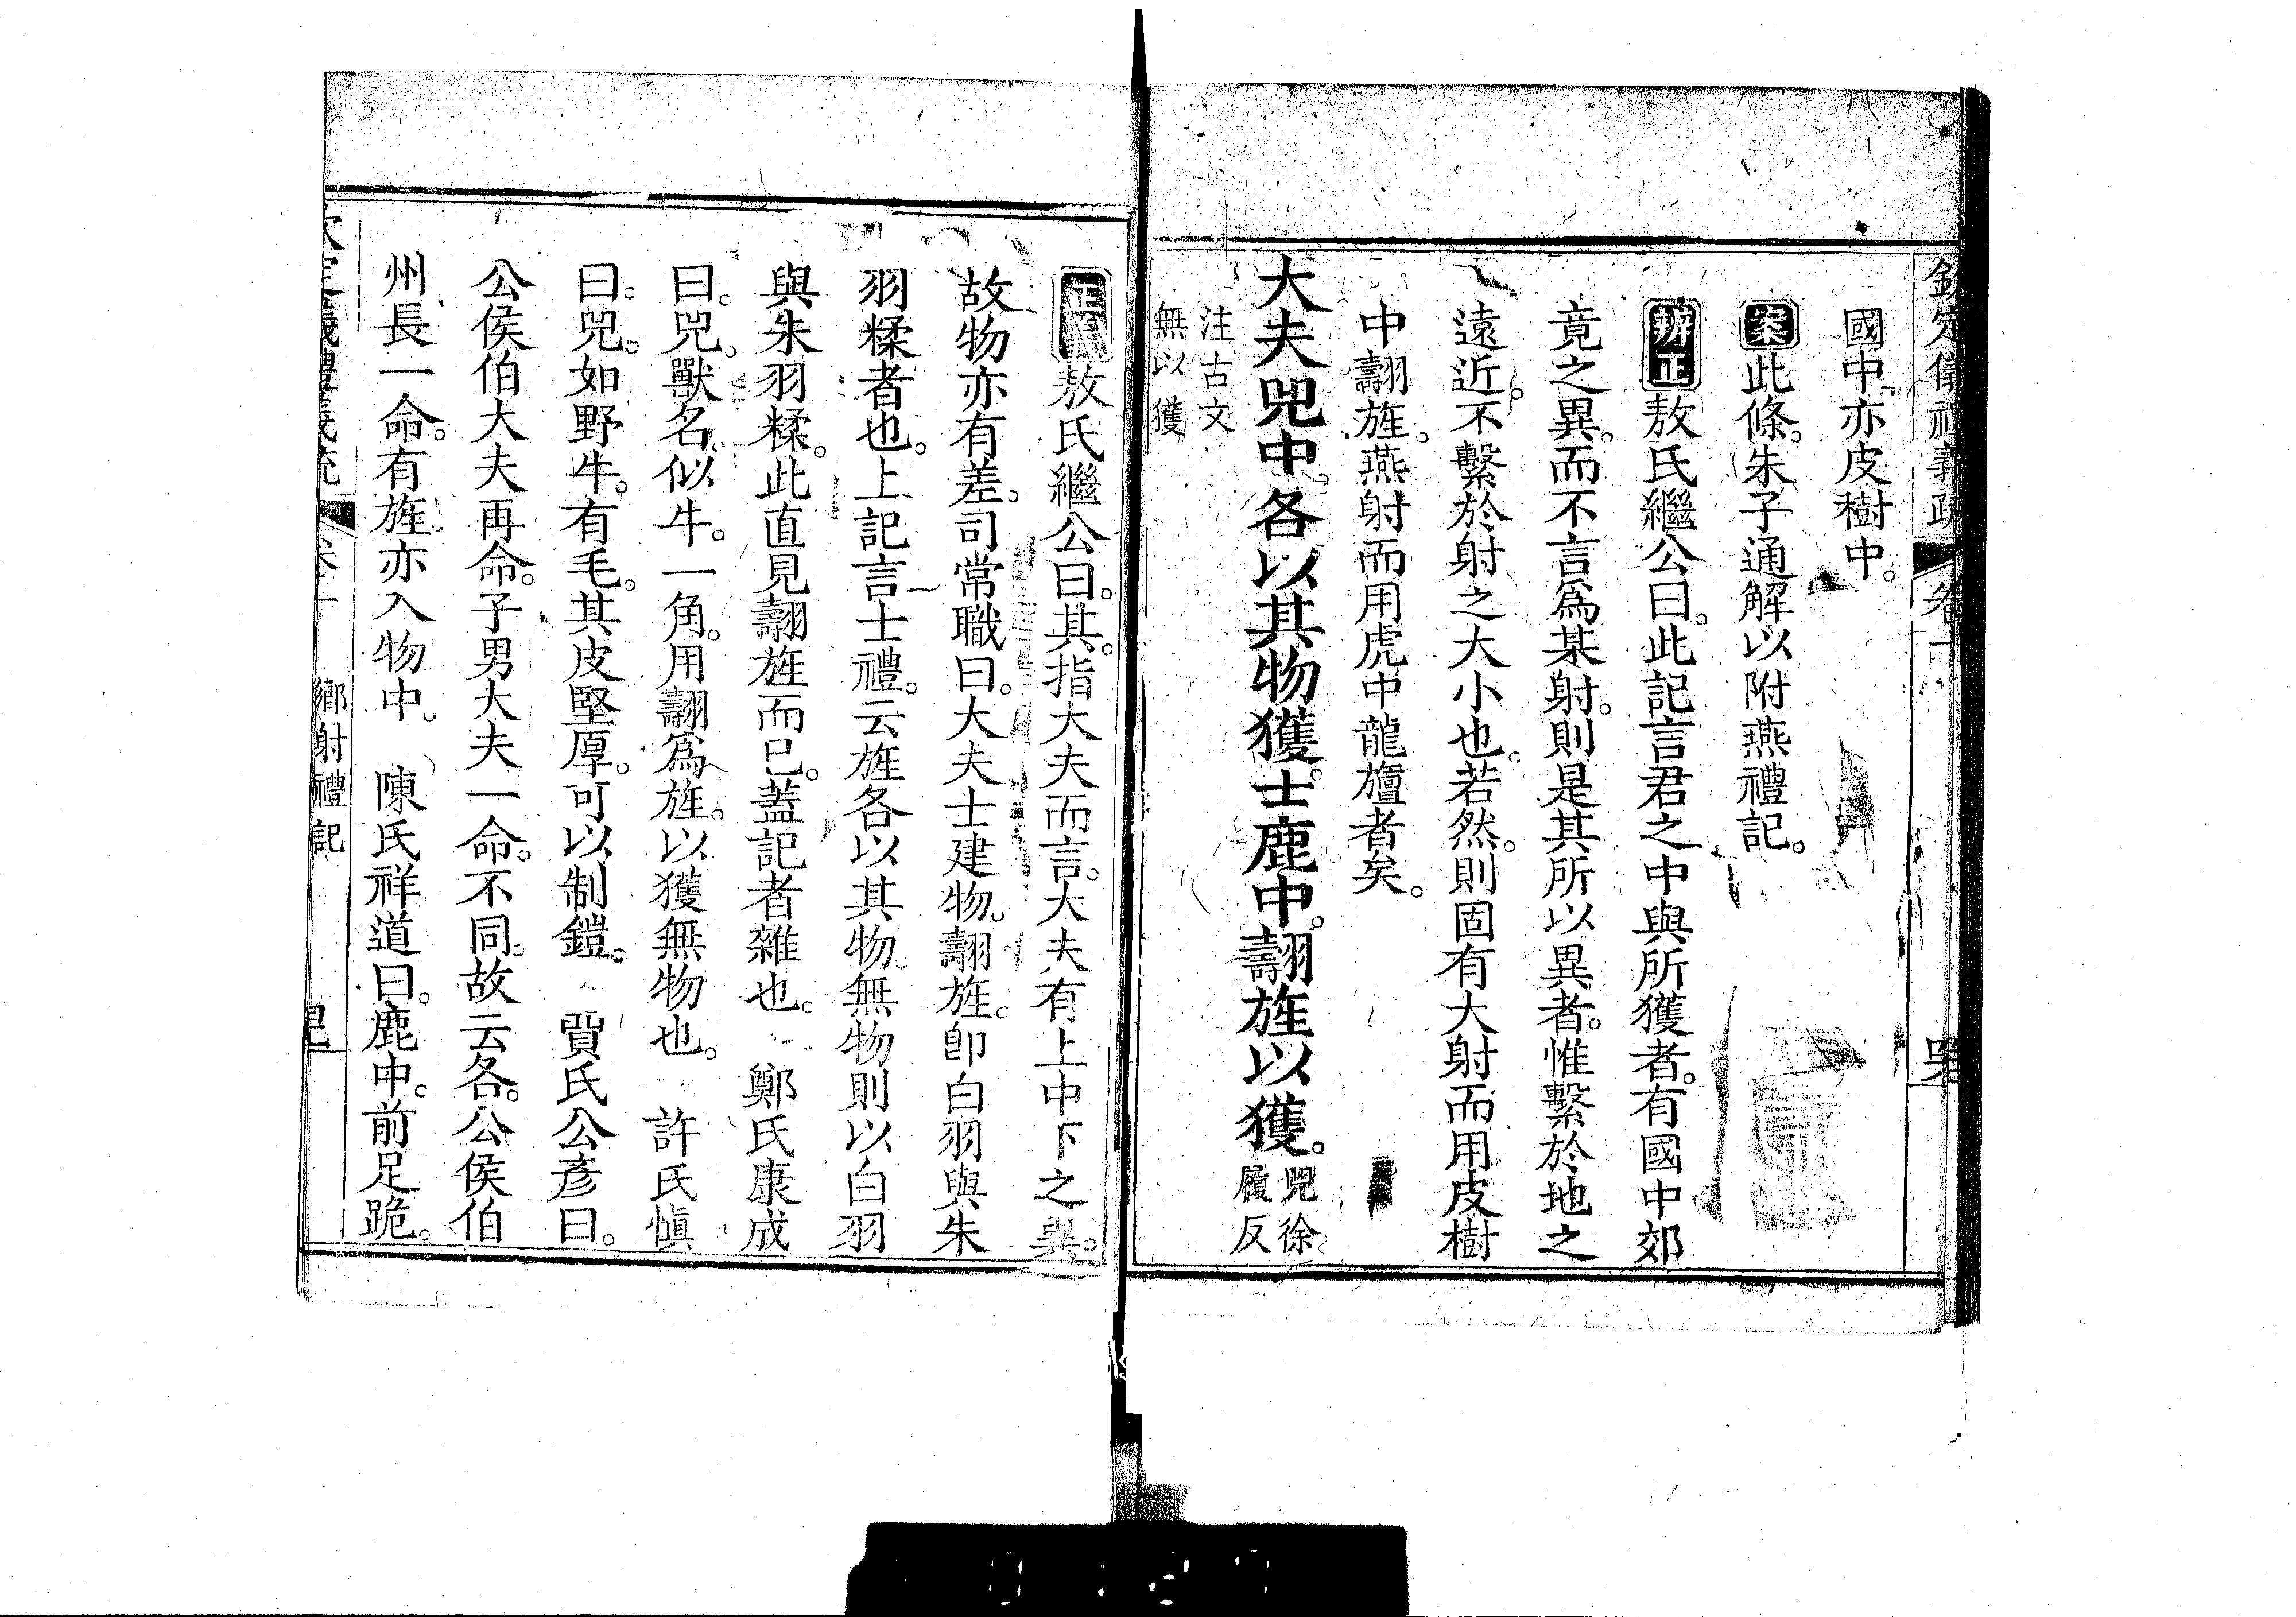 欽定儀禮義疏 卷十
國中亦皮樹中。
案此條。朱子通解以附燕禮記。
辨正敖氏繼公曰。此記言君之中與所獲者。有國中郊
竟之異。而不言爲某射。則是其所以異者。惟繫於地之
遠近。不繫於射之大小也。若然。則固有大射而用皮樹
中翿旌。燕射而用虎中龍旜者矣。
大夫兕中。各以其物獲。士鹿中。翿旌以獲。兕徐
履反
注古文
無以獲
正義敖氏繼公曰。其。指大夫而言。大夫有上中下之異。
故物亦有差。司常職曰。大夫士建物。翿旌。卽白羽與朱
羽糅者也。上記言士禮。云旌各以其物。無物則以白羽
與朱羽糅。此直見翿旌而已。蓋記者雜也。 鄭氏康成
曰。兕。獸名。似牛。一角。用翿爲旌。以獲無物也。 許氏愼
曰。兕。如野牛。有毛。其皮堅厚。可以制鎧。 賈氏公彥曰。
公侯伯大夫再命。子男大夫一命。不同。故云各。公侯伯
州長一命。有旌亦入物中。 陳氏祥道曰。鹿中。前足跪。
欽定儀禮義疏 卷十 鄉射禮記